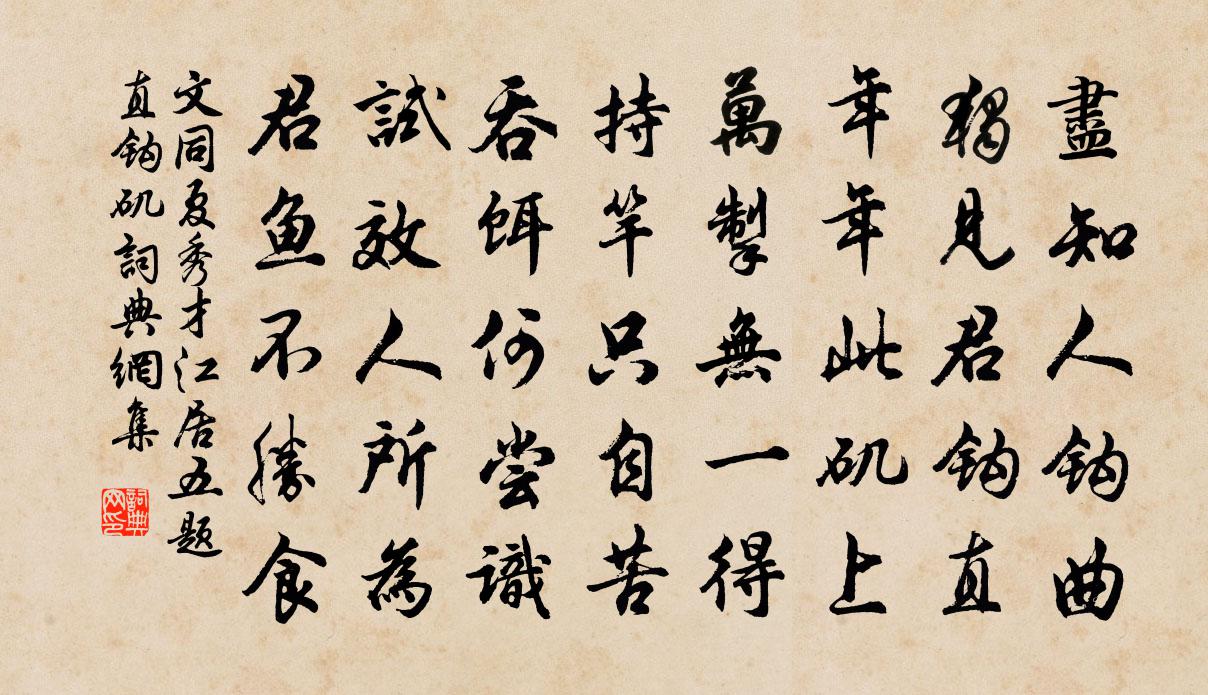 盡知人鈎曲
獨見君鈎直
年年此矶上
萬掣無一得
持竿只自苦
吞餌何嘗識
試效人所為
君魚不勝食
文同夏秀才江居五題
直鈎矶詞典網集
詞典网印